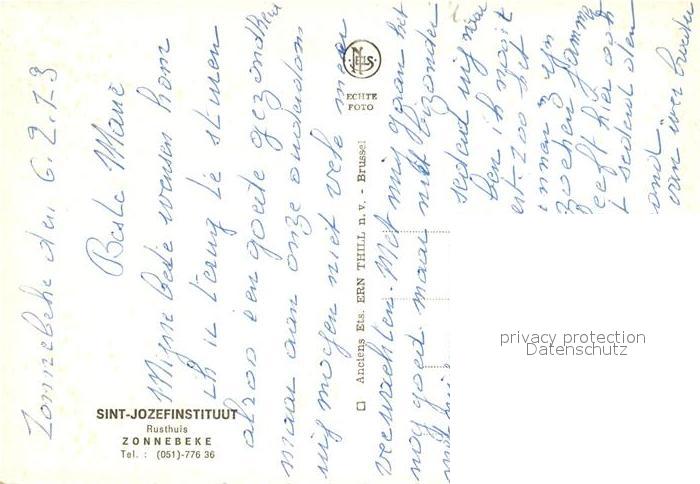 Zonnebeke den 6.2.73
Beste Marie
Mijne beste wensen kom
ik u terug te sturen
alzoo een goede gezondheid
maar aan onze ouderdom
wij mogen niet vele meer
verwachten. Met mij gaan het
nog goed maar niet bizonder
sedert mijn
ben ik nooit
zoo het
3
hier ook
sedert den
van uw broeder
NELS
ECHTE
FOTO
Anciens Ets. ERN THILL n.v. - Brussel
SINT-JOZEFINSTITUUT
Rusthuis
ZONNEBEKE
Tel. : (051)-776 36
privacy protection
Datenschutz